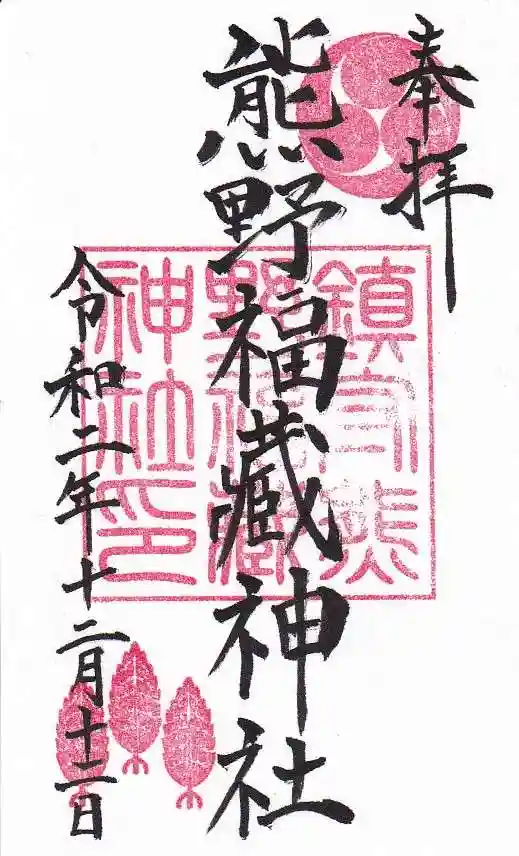 奉拝
熊野福藏神社
令和二年十二月十二日
鎮守熊
野福藏
神社印